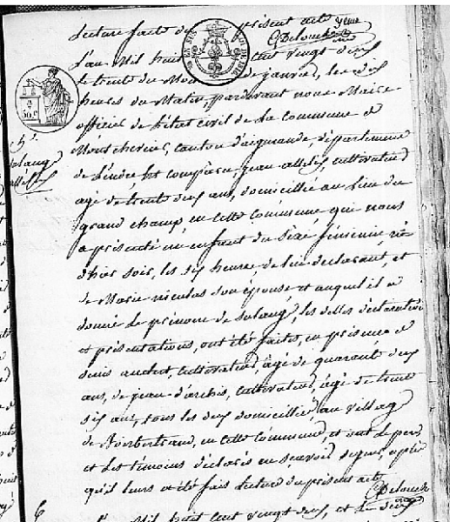 lecture faite du présent acte
Delouche
L'an Mil huit cent vingt deux
le trente du Mois de janvier, les dix
heures du Matin, pardevant nous Maire
officier de l'état civil de la Commune de
canton d'aigurande, département
de l'indre, est comparu jean cultivateur
agé de trente deux ans, domicillié au lieu du
grand champ, en cette Commune, qui nous
a présenté un enfant du Sexe féminin, né
d'hier soir, les dix heure de lui déclarant, et
de Marie nicolas son épouse, et auquel il a
donné le prénom de Solange, les dittes déclaration
et présentation, ont été faites, en présence de
cultivateur, agé de quarante deux
ans, de jean cultivateur, agé de trente
six ans, tous les deux domicillié au village
de en cette Commune, et ont le père
et les témoins déclarés ne savoir signer, après
qu'il leurs a été fait lecture du présent acte
Delouche
Mil huit cent vingt deux, et le deux